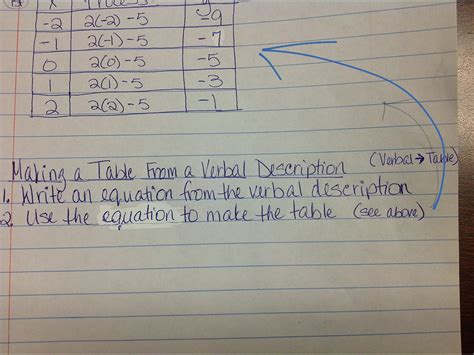 x y
-2 2(-2)-5 -9
-1 2(-1)-5 -7
0 2(0)-5 -5
1 2(1)-5 -3
2 2(2)-5 -1
Making a Table From a Verbal Description (Verbal → Table)
1. Write an equation from the verbal description
2. Use the equation to make the table (see above)